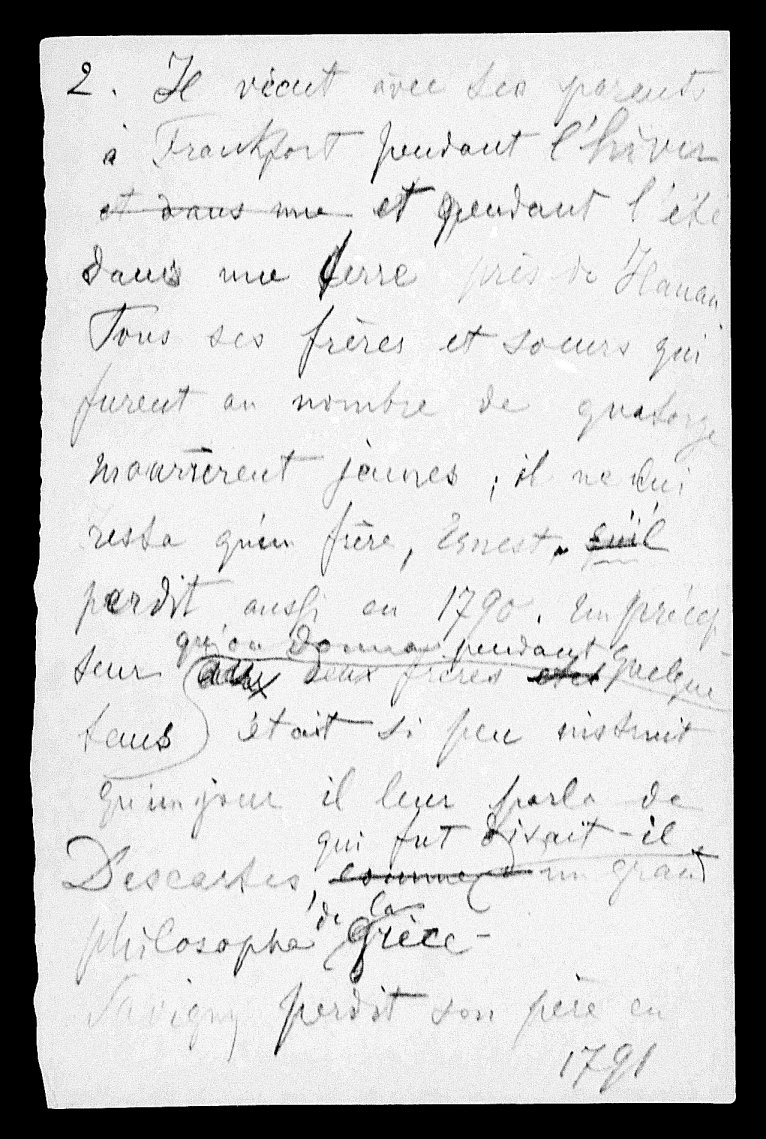 2. Il vécut avec ses parents
à Frankfort pendant l'hiver
et dans une et pendant l'été
dans une terre près de Hanau
Tous ses frères et soeurs qui
furent au nombre de quatorze
moururent jeunes ; il ne lui
resta qu'un frère, Ernest, qu'il
perdit aussi en 1790. Un précep
qu'on donna pendant quelque
seur aux deux frères
temps était si peu instruit
qu'un jour il leur parla de
qui fut disait-il
Descartes, comme un grand
philosophe de la Grèce -
Savigny perdit son père en
1791